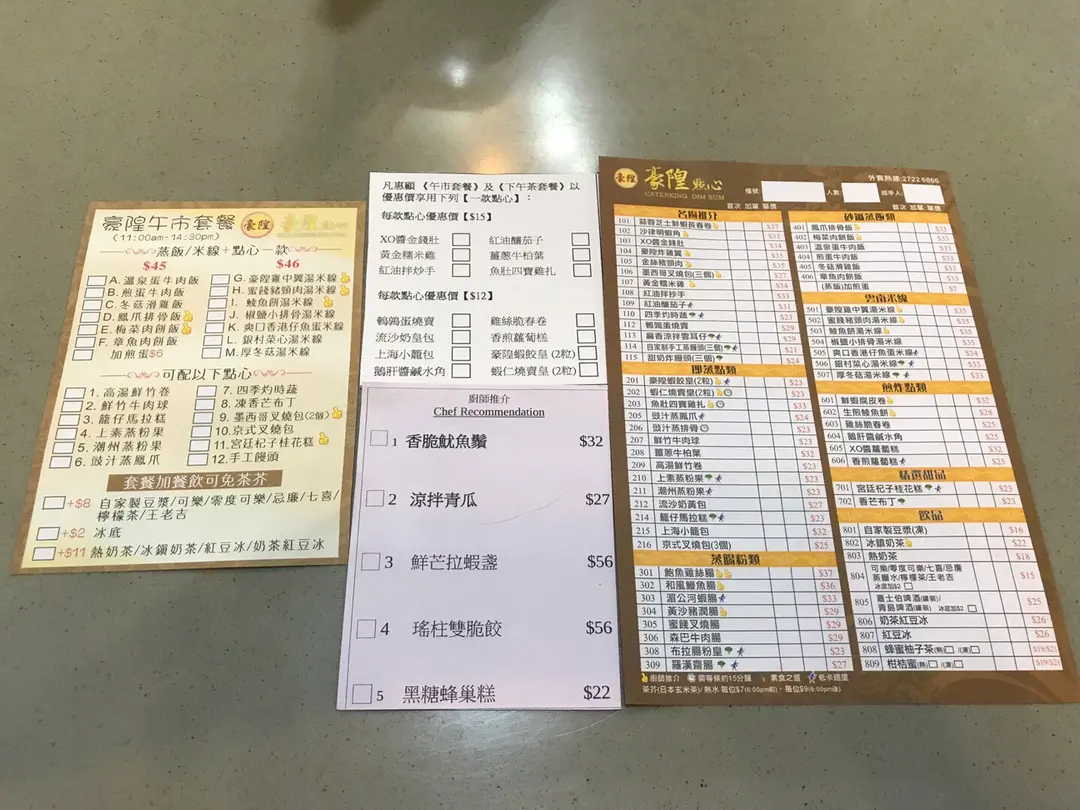 豪隍午市套餐
豪隍
(11:00am-14:30pm)
蒸飯/米線+點心一款
$45
$46
A. 溫泉蛋牛肉飯
B. 煎蛋牛肉飯
C. 冬菇滑雞飯
D. 鳳爪排骨飯
E. 梅菜肉餅飯
F. 章魚肉餅飯
加煎蛋$6
G. 豪隍雞中翼湯米線
H. 蜜餞豬頸肉湯米線
I. 鯪魚餅湯米線
J. 椒鹽小排骨湯米線
K. 爽口香港仔魚蛋米線
L. 銀村菜心湯米線
M. 厚冬菇湯米線
可配以下點心
1. 高湯鮮竹卷
2. 鮮竹牛肉球
3. 龍仔馬拉糕
4. 上素蒸粉果
5. 潮州蒸粉果
6. 豉汁蒸鳳爪
7. 四季灼時蔬
8. 凍香芒布丁
9. 墨西哥叉燒包(2個)
10. 京式叉燒包
11. 宮廷杞子桂花糕
12. 手工饅頭
套餐加餐飲可免茶芥
+$8 自家製豆漿/可樂/零度可樂/忌廉/七喜/
檸檬茶/王老吉
+$2 冰底
+$11 熱奶茶/冰鎮奶茶/紅豆冰/奶茶紅豆冰
凡惠顧《午市套餐》及《下午茶套餐》以
優惠價享用下列【一款點心】:
每款點心優惠價【$15】
XO醬金錢肚
紅油釀茄子
黃金糯米雞
薑蔥牛柏葉
紅油拌炒手
魚肚四寶雞扎
每款點心優惠價【$12】
鵪鶉蛋燒賣
雞絲脆春卷
流沙奶皇包
香煎蘿蔔糕
上海小籠包
豪隍蝦餃皇(2粒)
鵝肝醬鹹水角
蝦仁燒賣皇(2粒)
廚師推介
Chef Recommendation
1 香脆魷魚鬚 $32
2 涼拌青瓜 $27
3 鮮芒拉蝦盞 $56
4 瑤柱雙脆餃 $56
5 黑糖蜂巢糕 $22
豪隍
豪隍點心
CATERKING DIM SUM
外賣熱線:2722 6866
檯號:
人數:
經手人:
首次 加單 單價
首次 加單 單價
名廚推介
101 蒜蓉芝士鮮蝦長春卷 $37
102 沙律明蝦角 $33
103 XO醬金錢肚 $34
104 豪隍炸雞翼 $35
105 金絲豬頸肉 $35
106 墨西哥叉燒包(三個) $27
107 黃金糯米雞 $34
108 紅油拌炒手 $33
109 紅油釀茄子 $31
110 四季灼時蔬 $23
112 鵪鶉蛋燒賣 $29
113 麻香涼拌雲耳仔 $31
114 自家制手工蒸饅頭(三個) $21
115 甜奶炸饅頭(三個) $24
即蒸點類
201 豪隍蝦餃皇(2粒) $23
202 蝦仁燒賣皇(2粒) $23
203 魚肚四寶雞扎
205 豉汁蒸鳳爪
206 豉汁蒸排骨
207 鮮竹牛肉球
208 薑蔥牛柏葉
209 高湯鮮竹卷
210 上素蒸粉果
211 潮州蒸粉果
212 流沙奶黃包
214 龍仔馬拉糕
215 上海小籠包 $32
216 京式叉燒包(3個) $25
蒸腸粉類
301 鮑魚雞絲腸 $37
302 和風鰻魚腸 $36
303 湄公河蝦腸 $33
304 黃沙豬潤腸 $29
305 蜜餞叉燒腸 $29
306 森巴牛肉腸 $29
308 布拉腸粉皇 $23
309 羅漢齋腸 $27
砂鍋蒸飯類
401 鳳爪排骨飯 $33
402 梅菜肉餅飯 $33
403 溫泉蛋牛肉飯 $33
404 煎蛋牛肉飯 $33
405 冬菇滑雞飯 $33
406 章魚肉餅飯 $33
(蒸飯)加煎蛋 $7
雲南米線
501 豪隍雞中翼湯米線 $35
502 蜜餞豬頸肉湯米線 $35
503 鯪魚餅湯米線 $35
504 椒鹽小排骨湯米線 $35
505 爽口香港仔魚蛋米線 $34
506 銀村菜心湯米線 $33
507 厚冬菇湯米線 $33
煎炸點類
601 鮮蝦腐皮卷
602 生煎鯪魚餅 $28
603 雞絲脆春卷 $25
604 鵝肝醬鹹水角 $25
605 XO醬蘿蔔糕 $32
606 香煎蘿蔔糕 $25
精選甜品
701 宮廷杞子桂花糕 $23
702 香芒布丁 $23
飲品
801 自家製豆漿(凍) $16
802 冰鎮奶茶 $22
803 熱奶茶 $18
804 可樂/零度可樂/七喜/忌廉
蒸餾水/檸檬茶/王老吉
冰底加$2
$15
805 嘉士伯啤酒(罐裝)/
青島啤酒(罐裝) 冰底加$2
$25
806 奶茶紅豆冰 $26
807 紅豆冰 $26
808 蜂蜜柚子茶(熱) /(凍) $19/$21
809 柑桔蜜(熱) /(凍) $19/$21
廚師推介 需等候約15分鐘 素食之選 低卡選項
茶芥(日本玄米茶)/熱水 每位$7(6:00pm前)、每位$9(6:00pm後)